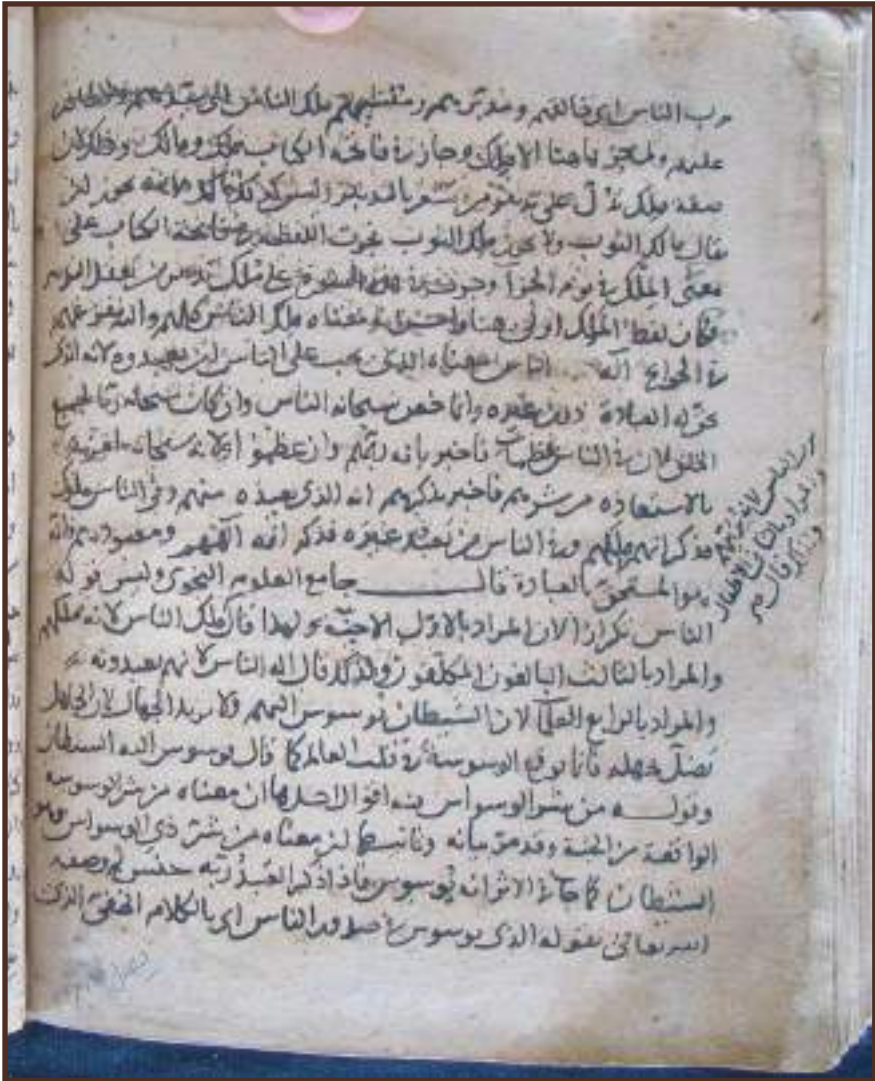 رب الناس اى خالقهم ومدبرهم ملك الناس اى
عليه ولم يجز هاهنا الا ملك وجاز فى فاتحة الكتاب ملك ومالك وذلك لان
صفة ملك تدل على تدبير من يشعر بالتدبير وليس كذلك مالك لانه يجوز ان
يقال مالك الثوب ولا يجوز ملك الثوب فجرت اللفظة فى فاتحة الكتاب على
معنى الملك فى يوم الجزا وجرت فى هذه السورة على ملك تدبير من يعقل التدبير
فكان لفظ الملك اولى هنا واحسن و معناه ملك الناس كلهم واليه مفزعهم
فى الحوايج اله الناس معناه الذى يجب على الناس ان يعبدوه لانه الذى
تحق له العبادة دون غيره وانما خص سبحانه الناس وان كان سبحانه ربا لجميع
الخلق لان فى الناس عظماء فاخبر بانه ربهم وان عظموا ولانه سبحانه امر
بالاستعاذة من شرهم فاخبر بذكرهم انه الذى يعيذ منهم وفى الناس ملوك
فذكر انه ملكهم وفى الناس من يعبد غيره فذكر انه الههم ومعبودهم وانه
هو المستحق للعبادة قال جامع العلوم النحوى وليس قوله
الناس تكرارا لان المراد بالاول الاجنة ولهذا قال ملك الناس لانه يملكهم
والمراد بالثالث البالغون المكلفون ولذلك قال اله الناس لانهم يعبدونه
والمراد بالرابع العلما لان الشيطان يوسوس اليهم ولا يريد الجهال لان الجاهل
يضل بجهله فانما يوقع الوسوسة فى قلب العالم كما قال فوسوس اليه الشيطان
وقوله من شر الوسواس فيه اقوال احدها ان معناه من شر الوسوسة
الواقعة من الجنة وقد مر بيانه وثانيها ان معناه من شر ذى الوسواس وهو
الشيطان كما جا فى الاثر انه يوسوس فاذا ذكر العبد ربه خنس ثم وصفه
الله تعالى بقوله الذى يوسوس فى صدور الناس اى بالكلام الخفى الذى
والمراد بالثانى الاطفال
ولذلك قال